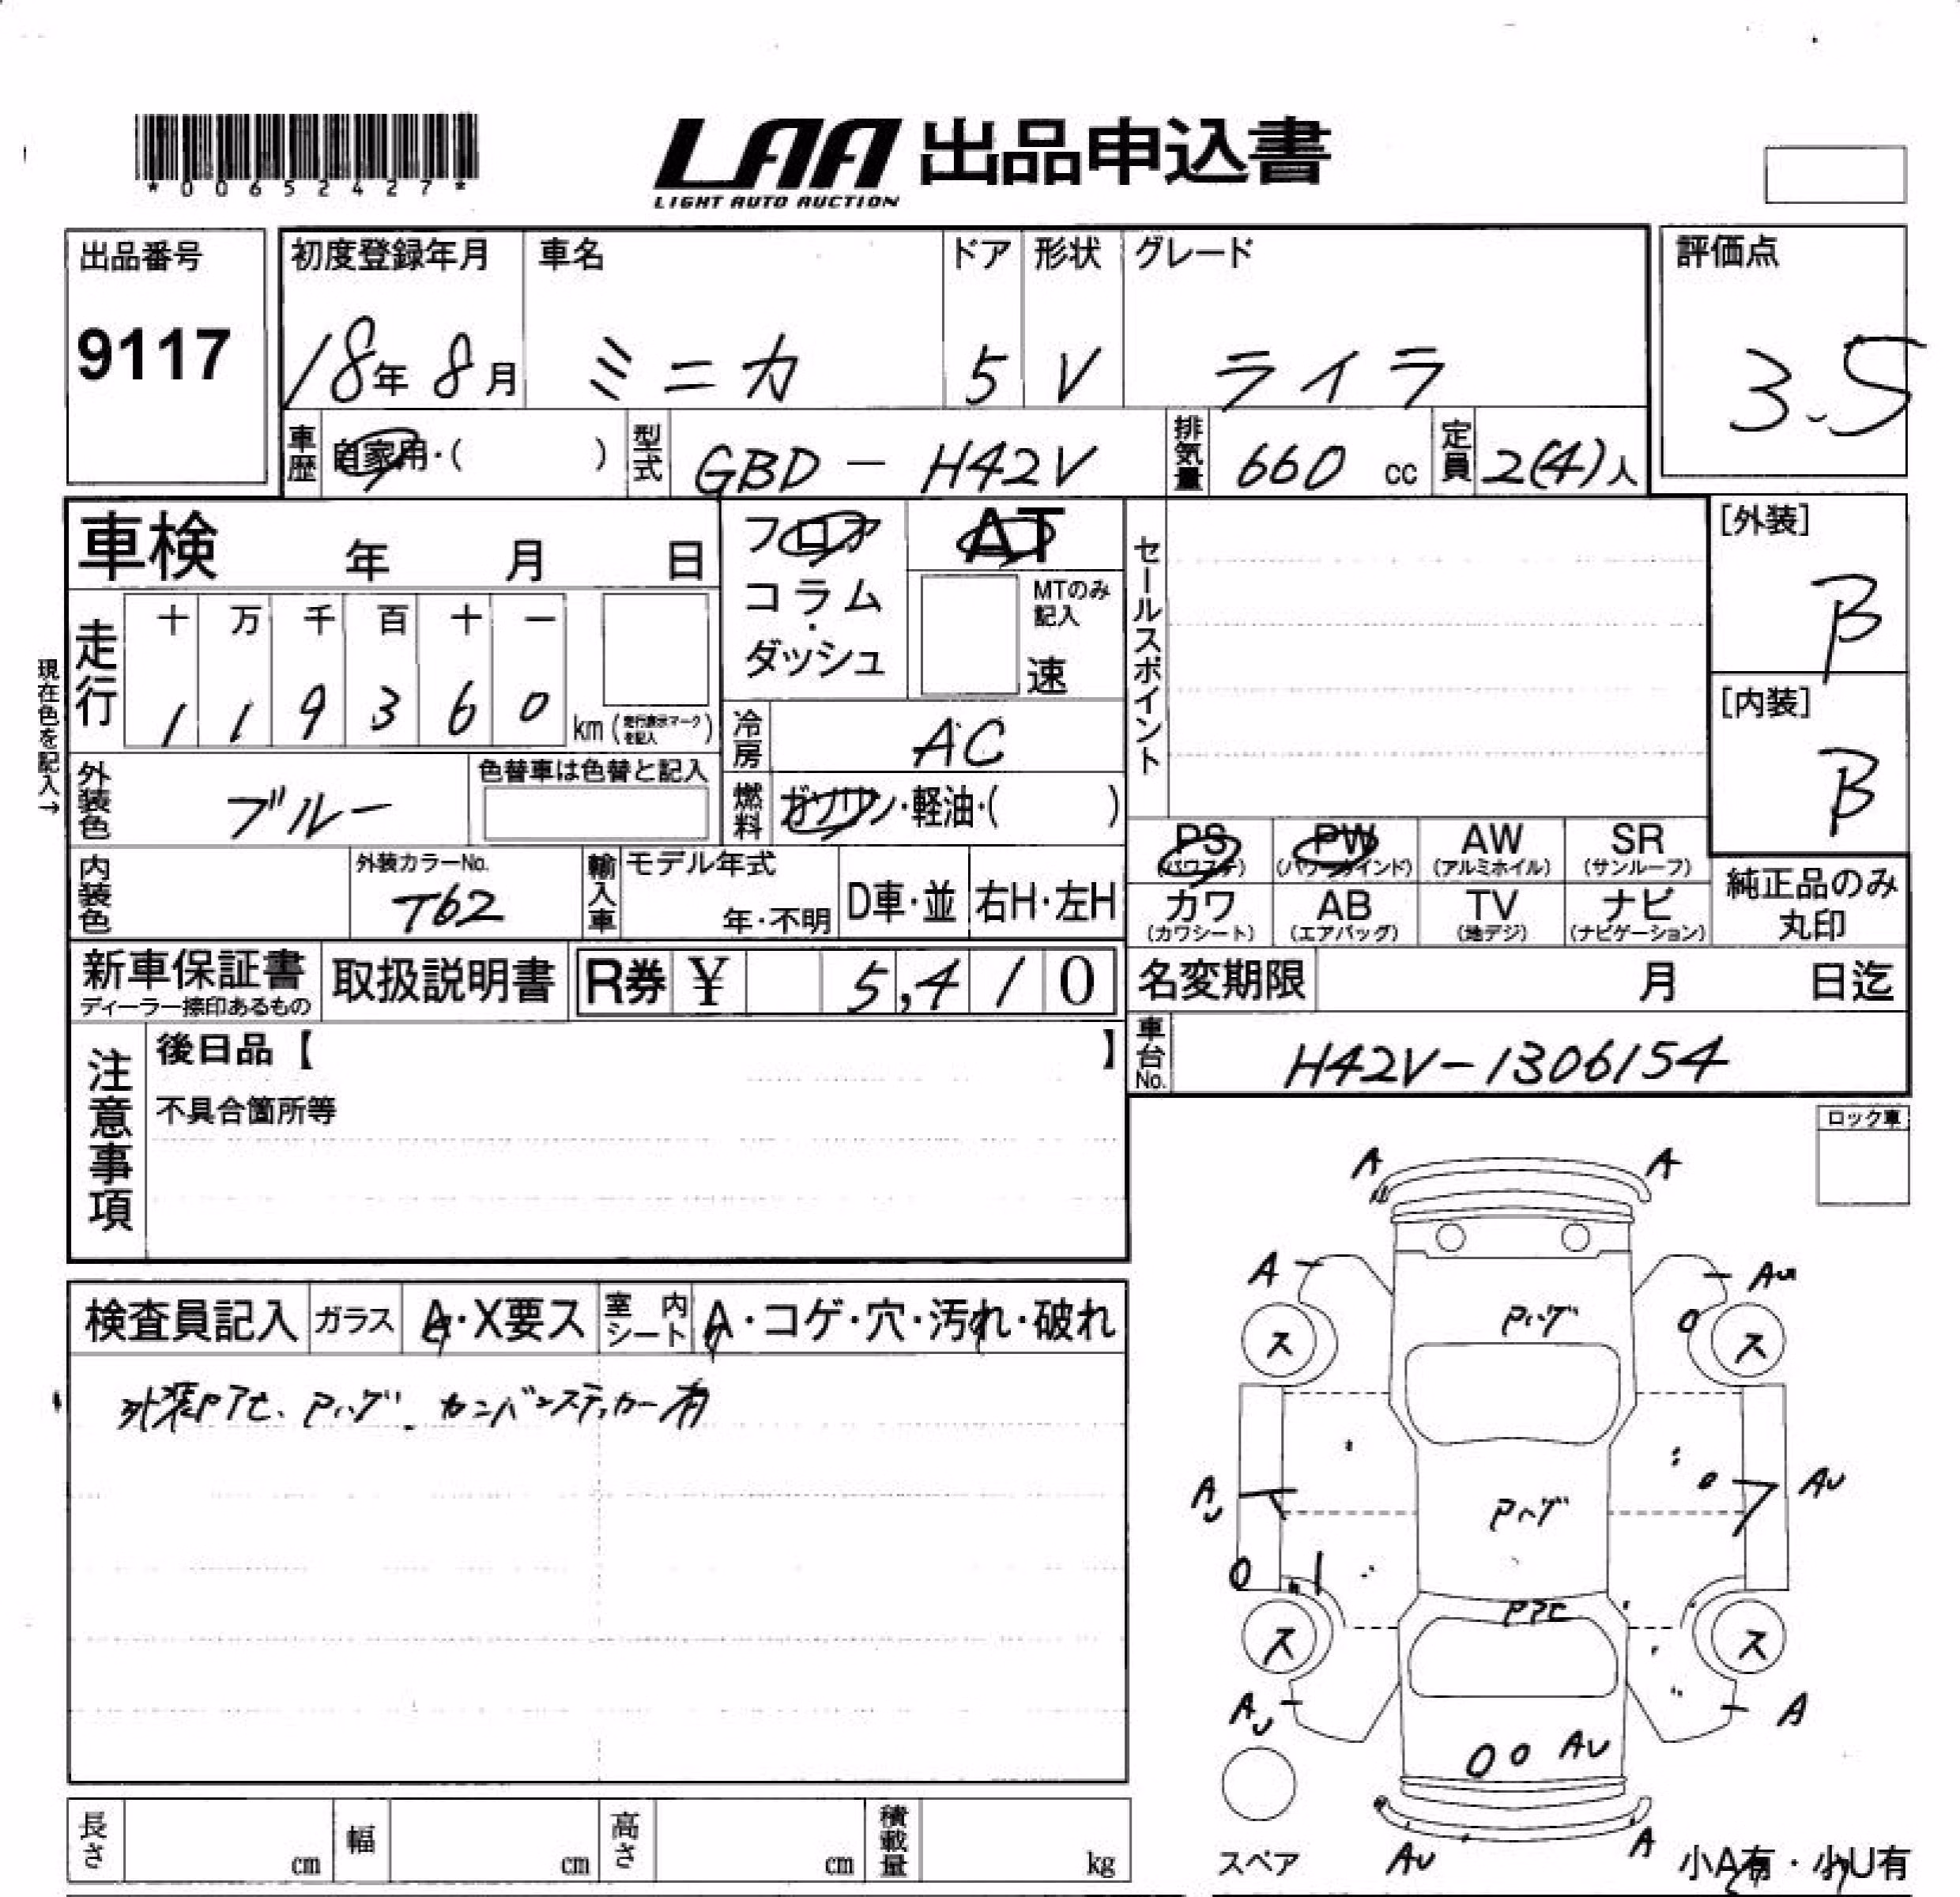 *00652427*
LAA 出品申込書
LIGHT AUTO AUCTION
出品番号 初度登録年月 車名 ドア 形状 グレード 評価点
9117 18年 8月 ミニカ 5 V ライラ 3.5
車歴 自家用・( ) 型式 GBD-H42V 排気量 660 cc 定員 2(4)人
車検 年 月 日
フロア
コラム
・
ダッシュ
AT
MTのみ記入
速
セールスポイント
[外装]
B
[内装]
B
現在色を記入→
走行 十 万 千 百 十 一
1 1 9 3 6 0 km (走行表示マークを記入)
冷房 AC
外装色 ブルー 色替車は色替と記入
燃料 ガソリン・軽油・( )
PS PW AW SR
(パワステ) (パワーウインド) (アルミホイル) (サンルーフ)
内装色 外装カラーNo. T62 輸入車 モデル年式 年・不明 D車・並 右H・左H
カワ AB TV ナビ
(カワシート) (エアバッグ) (地デジ) (ナビゲーション)
純正品のみ
丸印
新車保証書 取扱説明書 R券 ¥ 5,410
ディーラー捺印あるもの
名変期限 月 日迄
注意事項
後日品【 】
不具合箇所等
車台No. H42V-1306154
ロック車
検査員記入 ガラス A・X要ス 室内シート A・コゲ・穴・汚れ・破れ
外装Pアセ、Pハゲ、カンバンステッカー有
A A
A AU
Pハゲ
O
ス ス
AU AU
Pハゲ
O
Pアセ
ス ス
AU A
O O AU
スペア AU A 小A有・小U有
長さ cm 幅 cm 高さ cm 積載量 kg